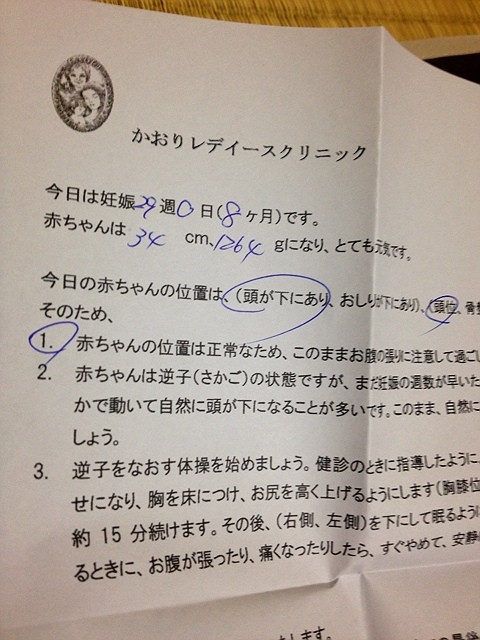 かおりレデイースクリニック
今日は妊娠29週0日(8ヶ月)です。
赤ちゃんは 34 cm、1264 gになり、とても元気です。
今日の赤ちゃんの位置は、(頭が下にあり、おしりが下にあり)、(頭位、骨
そのため、
1. 赤ちゃんの位置は正常なため、このままお腹の張りに注意して過ごし
2. 赤ちゃんは逆子(さかご)の状態ですが、まだ妊娠の週数が早いた
かで動いて自然に頭が下になることが多いです。このまま、自然に
しょう。
3. 逆子をなおす体操を始めましょう。健診のときに指導したように、
せになり、胸を床につけ、お尻を高く上げるようにします(胸膝位
約 15 分続けます。その後、(右側、左側)を下にして眠るよう
るときに、お腹が張ったり、痛くなったりしたら、すぐやめて、安静
します。